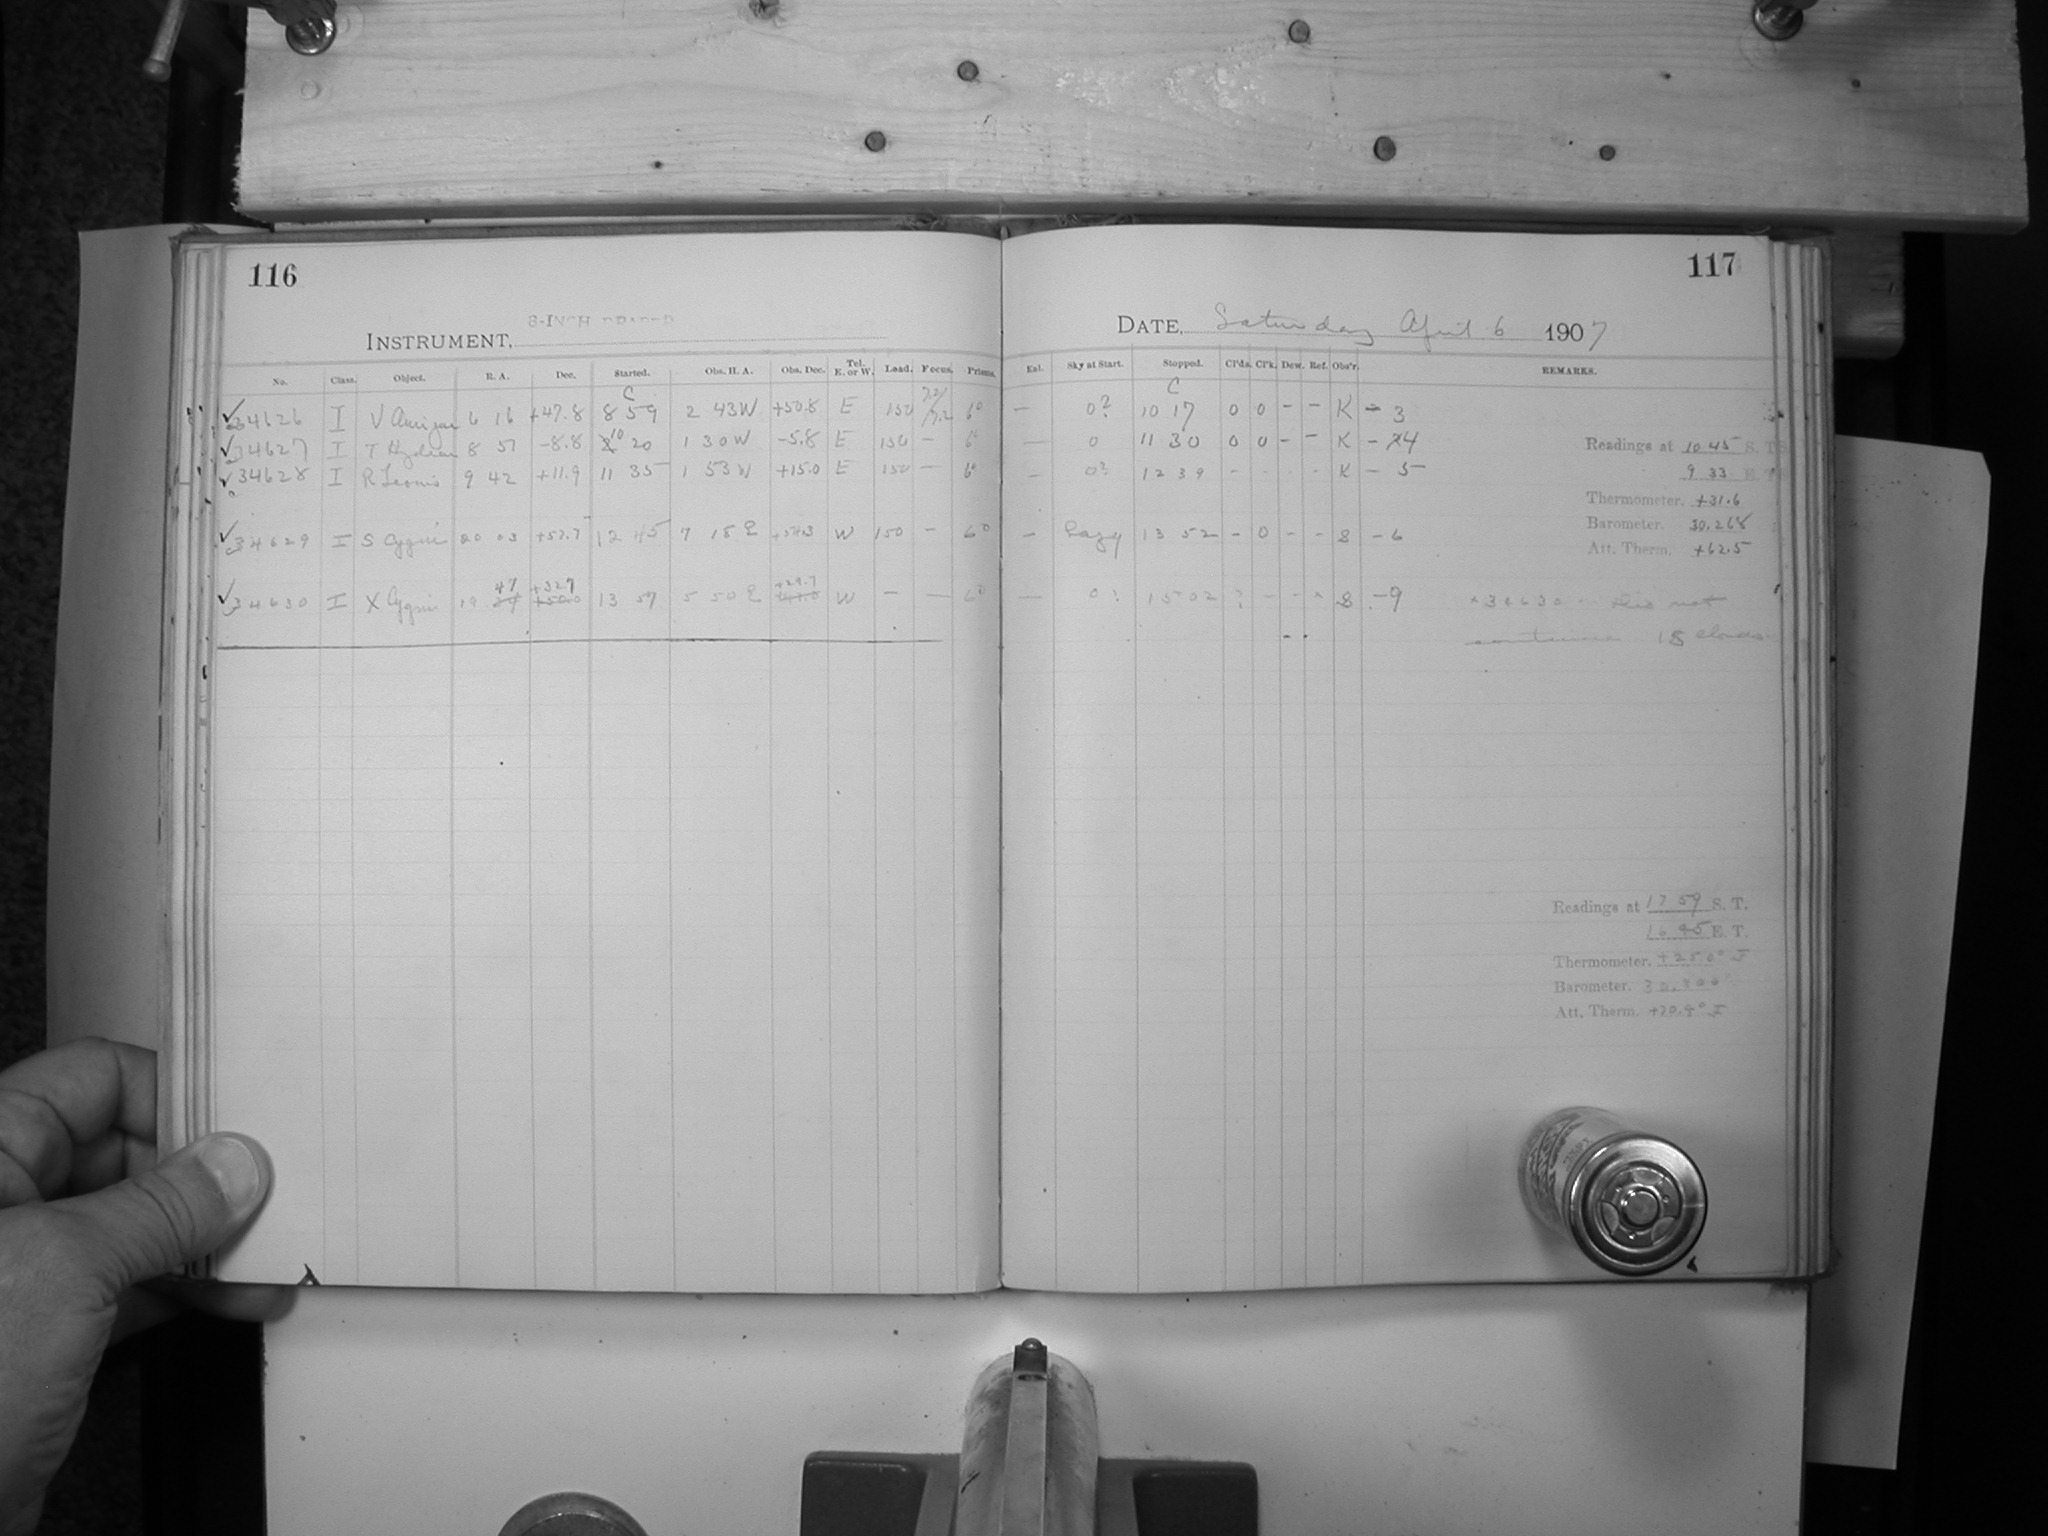 116
8-INCH DRAPER
INSTRUMENT,
No. Class. Object. R. A. Dec. Started. Obs. H. A. Obs. Dec. Tel. E. or W. Load. Focus. Prisms.
34626 I V Aurigae 6 16 +47.8 8 59 2 43 W +50.8 E 150 7.2/7.2 6°
34627 I T Hydrae 8 51 -8.8 10 20 1 30 W -5.8 E 150 - 6°
34628 I R Leonis 9 42 +11.9 11 35 1 53 W +15.0 E 150 - 6°
34629 I S Cygni 20 03 +57.7 12 45 7 18 E W 150 - 6°
34630 I X Cygni 19 47 +32.7 13 57 5 50 E +29.7 W - - 6°
117
DATE, Saturday April 6 1907
Exl. Sky at Start. Stopped. Cl'ds. Cl'k. Dew. Ref. Obs'r. REMARKS.
C
- 0? 10 17 0 0 - - K - 3
- 0 11 30 0 0 - - K - 4
- 0? 12 39 - - - - K - 5
- hazy 13 52 - 0 - - 8 - 6
- 0? 15 02 ? - - - 8 - 9
Readings at 10 45 S. T.
9 33 E. T.
Thermometer. +31.6
Barometer. 30.268
Att. Therm. +62.5
34630 - Did not
continue 18 clouds
Readings at 17 59 S. T.
16 45 E. T.
Thermometer. +25.0° J
Barometer. 30.300
Att. Therm. +70.9° J